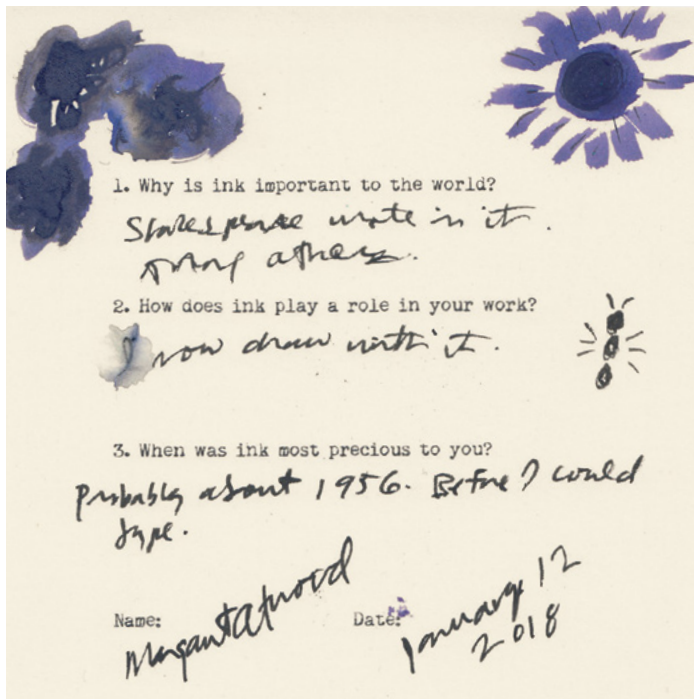 1. Why is ink important to the world?
Shakespeare wrote in it.
Among others.
2. How does ink play a role in your work?
I now draw with it.
3. When was ink most precious to you?
Probably about 1956. Before I could
type.
Name: Margaret Atwood Date: January 12
2018